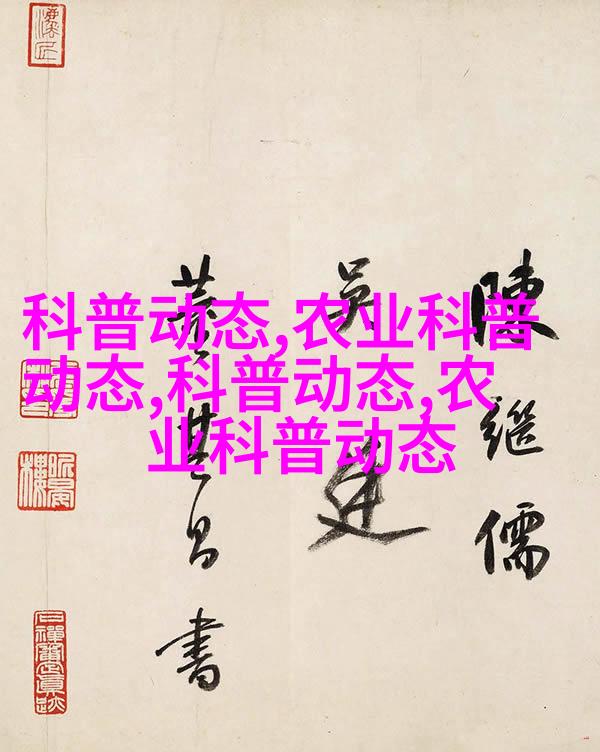 科普动态,农业科普
动态,科普动态,农
业科普动态
陳繼儒
吳廷
董其昌書